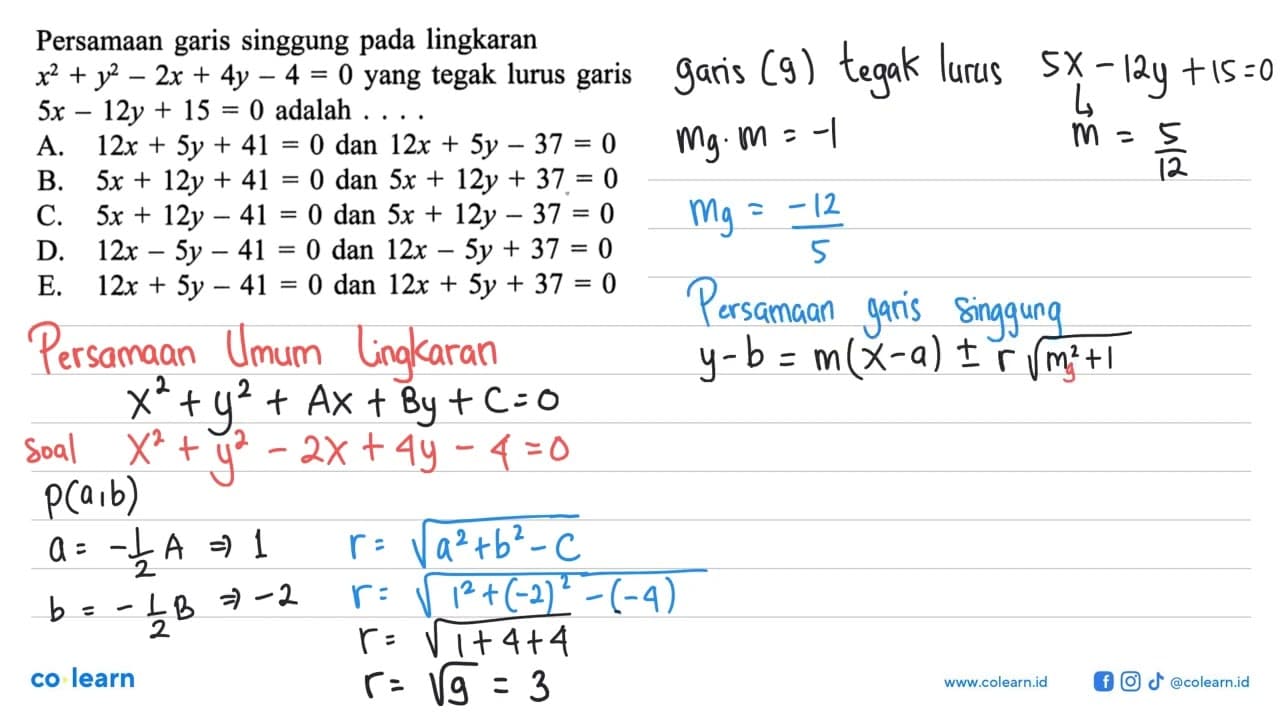 Persamaan garis singgung pada lingkaran
x² + y² – 2x + 4y – 4 = 0 yang tegak lurus garis
5x – 12y + 15 = 0 adalah . . . .
A. 12x + 5y + 41 = 0 dan 12x + 5y – 37 = 0
B. 5x + 12y + 41 = 0 dan 5x + 12y + 37 = 0
C. 5x + 12y – 41 = 0 dan 5x + 12y – 37 = 0
D. 12x – 5y – 41 = 0 dan 12x – 5y + 37 = 0
E. 12x + 5y – 41 = 0 dan 12x + 5y + 37 = 0
Persamaan Umum Lingkaran
x² + y² + Ax + By + C = 0
Soal x² + y² - 2x + 4y - 4 = 0
P(a,b)
a = -1/2 A ⇒ 1
b = -1/2 B ⇒ -2
r = √(a² + b² - C)
r = √(1² + (-2)² - (-4))
r = √(1 + 4 + 4)
r = √9 = 3
garis (g) tegak lurus 5x - 12y + 15 = 0
mg . m = -1
↳ m = 5/12
mg = -12/5
Persamaan garis singgung
y - b = m(x - a) ± r √(mg² + 1)
co learn
www.colearn.id
@colearn.id